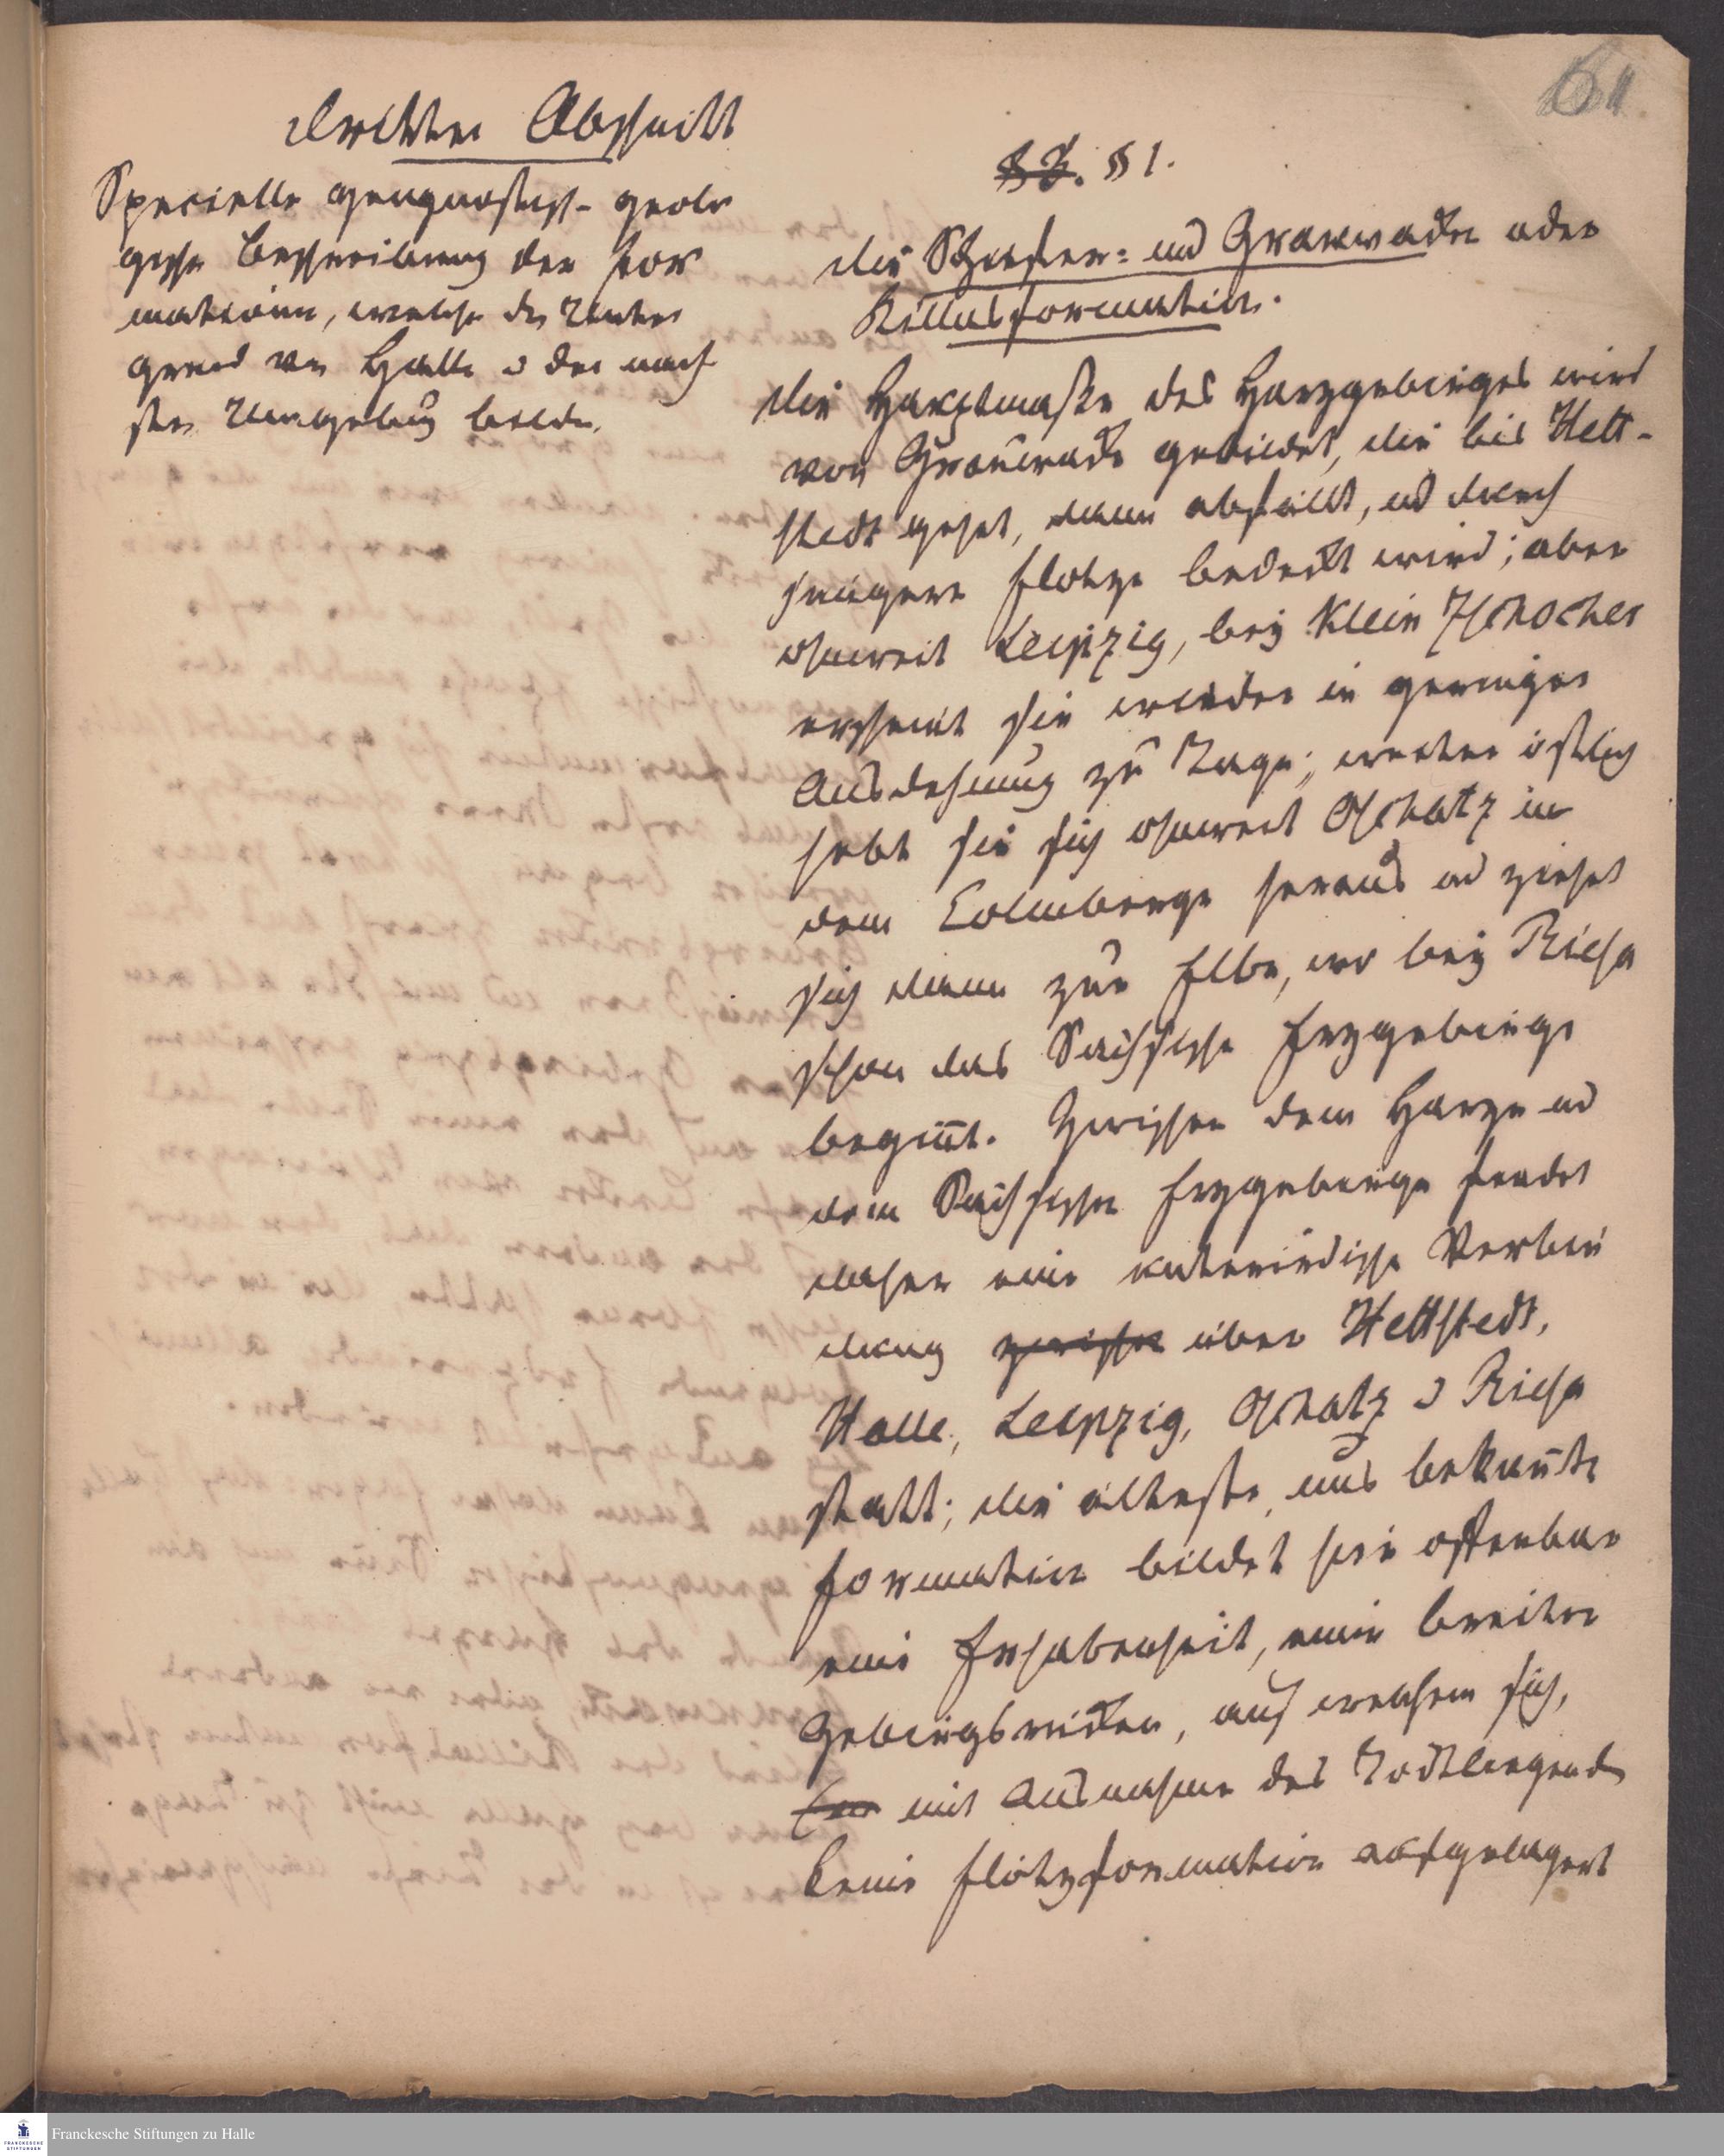 Dritter Abschnitt
Specielle geognostisch-geolo
gische Beschreibung der For
mationen, welche den Unter
grund von Halle u der näch
sten Umgebung bilden.
61.
§ 3. § 1.
Die Schiefer- und Grauwacken oder
Killasformation.
Die Hauptmaße des Harzgebirges wird
von Grauwacke gebildet, die bis Hett-
stedt gehet, dann abfällt, und durch
jüngere Flötze bedeckt wird; aber
ohnweit Leipzig, bey Klein Zschocher
erscheint sie wieder in geringer
Ausdehnung zu Tage; weiter östlich
hebt sie sich ohnweit Oschatz in
dem Colmberge heraus und ziehet
sich dann zur Elbe, wo bey Riesa
schon das Sächsische Erzgebirge
begin̄t. Zwischen dem Harze und
dem Sächsischen Erzgebirge findet
daher eine unterirdische Verbin
dung zwischen über Hettstedt,
Halle, Leipzig, Oschatz u Riesa
statt; die älteste, uns bekan̄te
Formation bildet hier offenbar
eine Erhabenheit, einen breiten
Gebirgsrücken, auf welchem sich,
mit Ausnahme des Todtliegenden
keine Flötzformation aufgelagert
Franckesche Stiftungen zu Halle